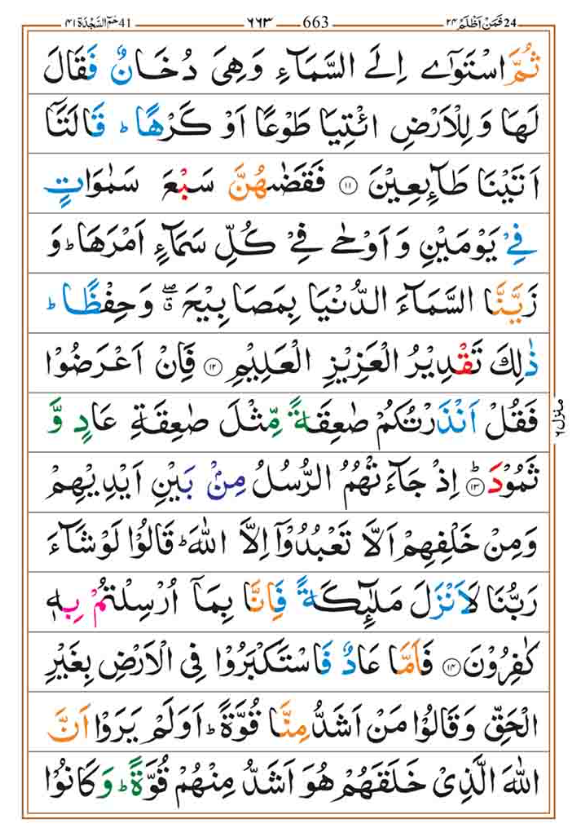 24 فَمَنْ اَظْلَمُ ٢٤ 663 ٦٦٣ 41 حٰمٓ السَّجْدَة ٤١
ثُمَّ اسْتَوٰٓى اِلَى السَّمَآءِ وَهِىَ دُخَانٌ فَقَالَ
لَهَا وَلِلْاَرْضِ ائْتِيَا طَوْعًا اَوْ كَرْهًا ؕ قَالَتَاۤ
اَتَيْنَا طَآئِعِيْنَ ۝۱۱ فَقَضٰهُنَّ سَبْعَ سَمٰوَاتٍ
فِيْ يَوْمَيْنِ وَاَوْحٰى فِيْ كُلِّ سَمَآءٍ اَمْرَهَا ؕ وَ
زَيَّنَّا السَّمَآءَ الدُّنْيَا بِمَصَابِيْحَ ۖۗ وَحِفْظًا ؕ
ذٰلِكَ تَقْدِيْرُ الْعَزِيْزِ الْعَلِيْمِ ۝۱۲ فَاِنْ اَعْرَضُوْا
فَقُلْ اَنْذَرْتُكُمْ صٰعِقَةً مِّثْلَ صٰعِقَةِ عَادٍ وَّ
ثَمُوْدَ ؕ۝۱۳ اِذْ جَآءَتْهُمُ الرُّسُلُ مِنْۢ بَيْنِ اَيْدِيْهِمْ
وَمِنْ خَلْفِهِمْ اَلَّا تَعْبُدُوْۤا اِلَّا اللّٰهَ ؕ قَالُوْا لَوْ شَآءَ
رَبُّنَا لَاَنْزَلَ مَلٰٓئِكَةً فَاِنَّا بِمَاۤ اُرْسِلْتُمْ بِهٖ
كٰفِرُوْنَ ۝۱۴ فَاَمَّا عَادٌ فَاسْتَكْبَرُوْا فِى الْاَرْضِ بِغَيْرِ
الْحَقِّ وَقَالُوْا مَنْ اَشَدُّ مِنَّا قُوَّةً ؕ اَوَلَمْ يَرَوْا اَنَّ
اللّٰهَ الَّذِيْ خَلَقَهُمْ هُوَ اَشَدُّ مِنْهُمْ قُوَّةً ؕ وَكَانُوْا
منزل ٦